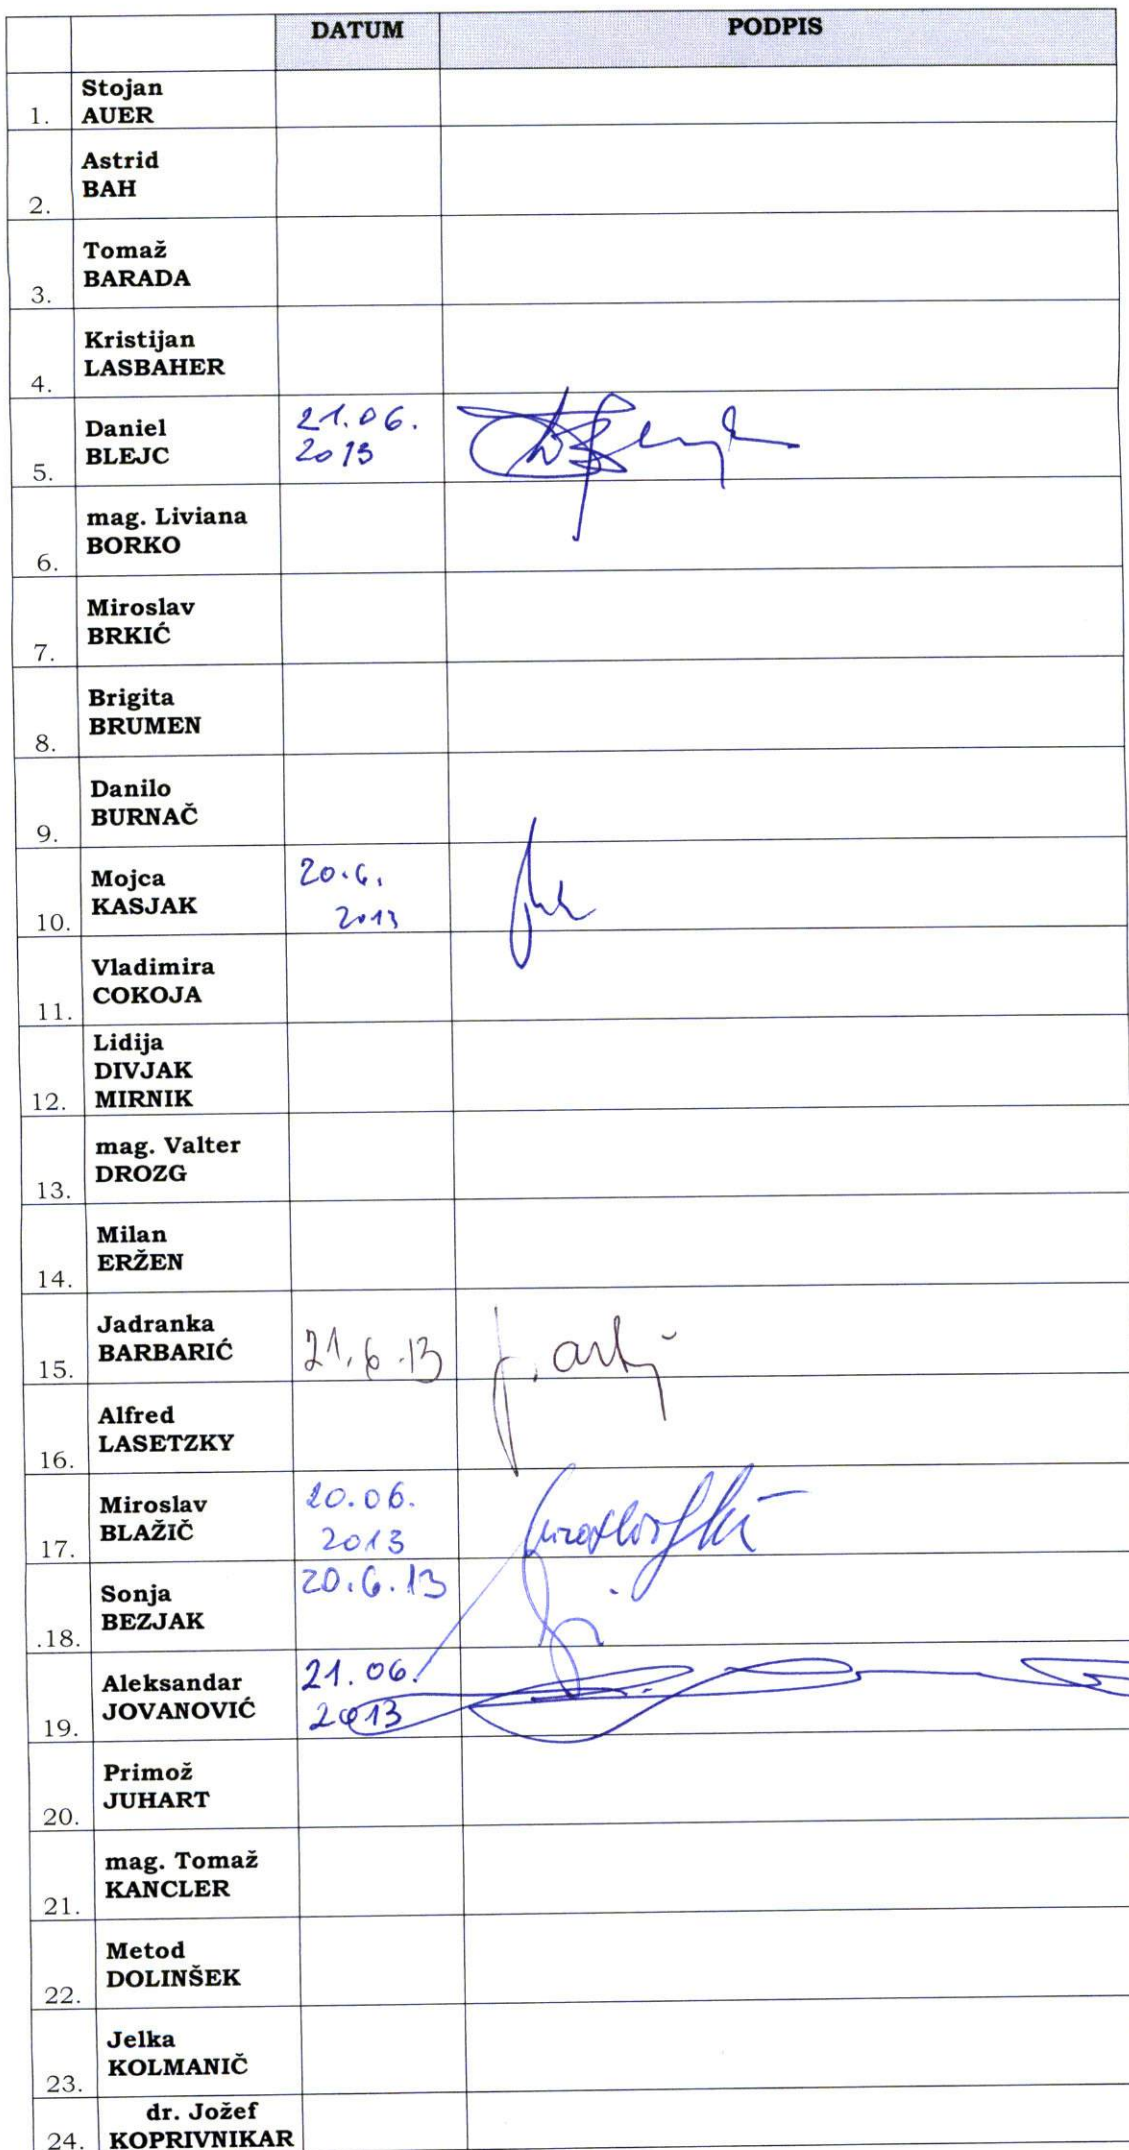 DATUM PODPIS
Stojan
1. AUER
Astrid
BAH
2.
Tomaž
BARADA
3.
Kristijan
LASBAHER
4.
Daniel 21.06.
BLEJC 2013
5.
mag. Liviana
BORKO
6.
Miroslav
BRKIĆ
7.
Brigita
BRUMEN
8.
Danilo
BURNAČ
9.
Mojca 20.6.
KASJAK 2013
10.
Vladimira
COKOJA
11.
Lidija
DIVJAK
12. MIRNIK
mag. Valter
DROZG
13.
Milan
ERŽEN
14.
Jadranka
BARBARIĆ 21.6.13
15.
Alfred
LASETZKY
16.
Miroslav 20.06.
BLAŽIČ 2013
17.
Sonja 20.6.13
BEZJAK
.18.
Aleksandar 21.06.
JOVANOVIĆ 2013
19.
Primož
JUHART
20.
mag. Tomaž
KANCLER
21.
Metod
DOLINŠEK
22.
Jelka
KOLMANIČ
23.
dr. Jožef
24. KOPRIVNIKAR